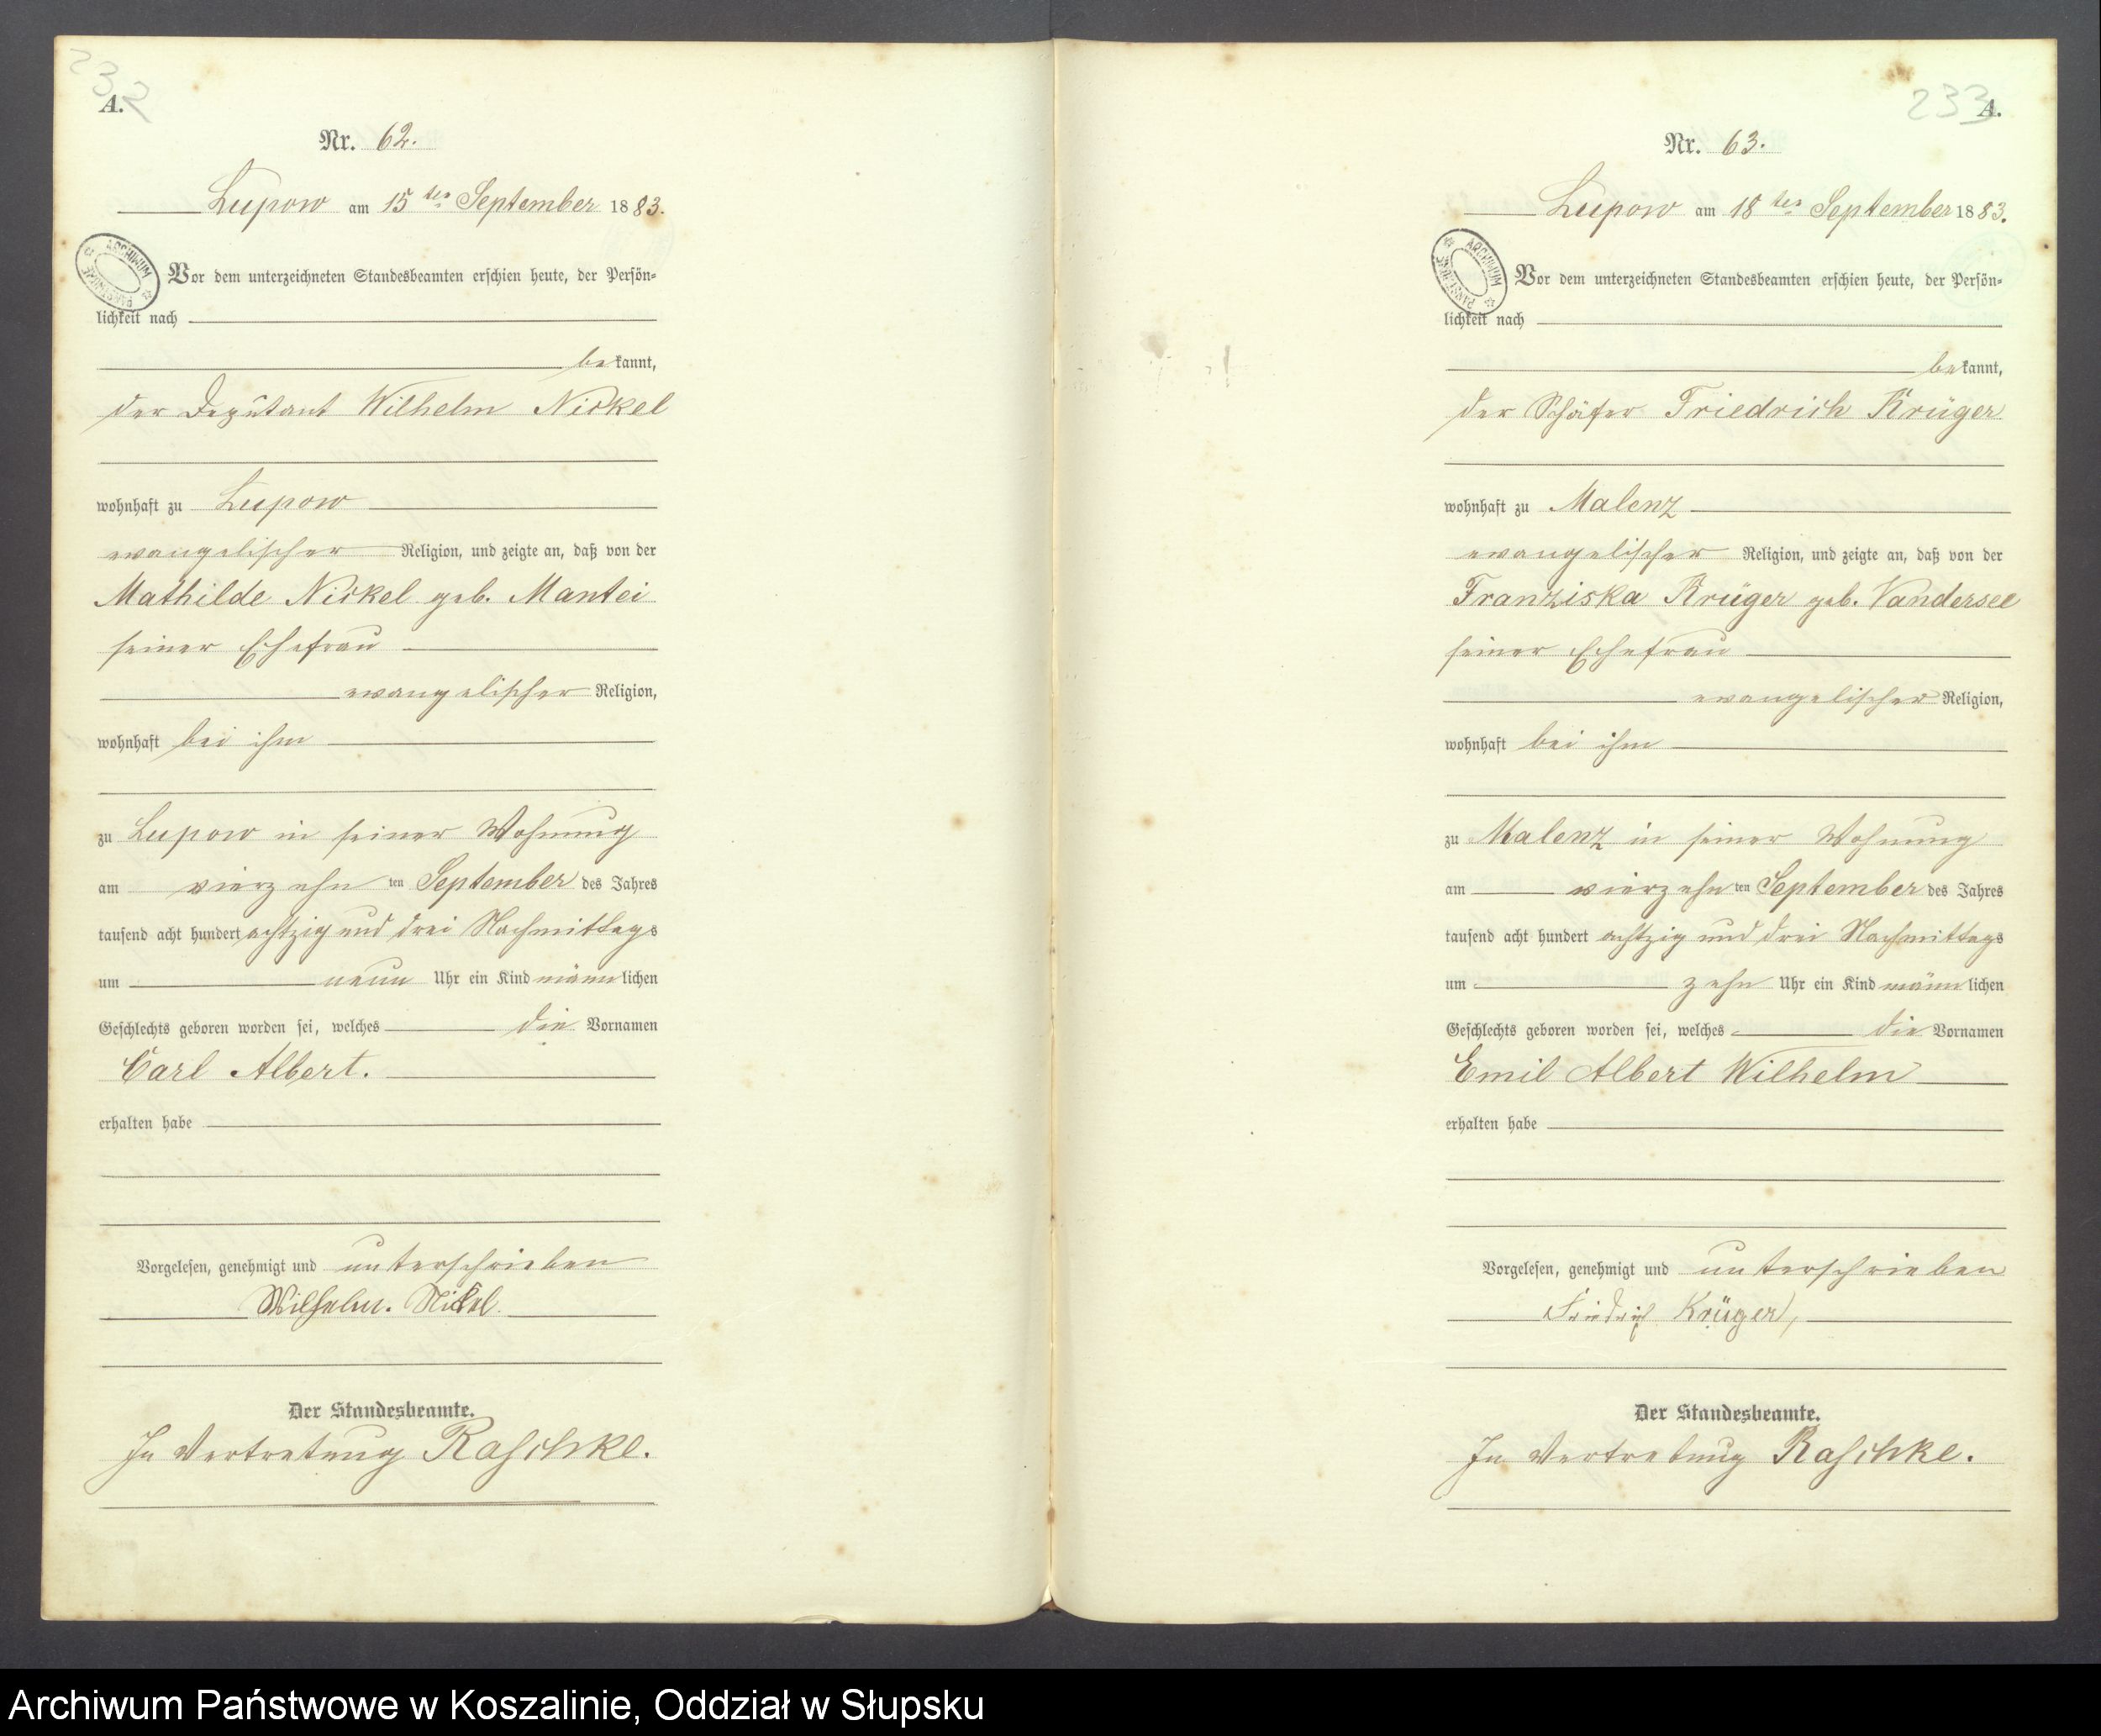 232
A.
Nr. 62.
Lupow am 15ten September 1883.
ARCHIWUM PAŃSTWOWE
Vor dem unterzeichneten Standesbeamten erschien heute, der Persön-
lichkeit nach
bekannt,
der Deputant Wilhelm Nickel
wohnhaft zu Lupow
evangelischer Religion, und zeigte an, daß von der
Mathilde Nickel geb. Mantei
seiner Ehefrau
evangelischer Religion,
wohnhaft bei ihm
zu Lupow in seiner Wohnung
am vierzehn ten September des Jahres
tausend acht hundert achtzig und drei Nachmittags
um neun Uhr ein Kind männlichen
Geschlechts geboren worden sei, welches die Vornamen
Carl Albert.
erhalten habe
Vorgelesen, genehmigt und unterschrieben
Wilhelm. Nickel.
Der Standesbeamte.
In Vertretung Raschke.
233
A.
Nr. 63.
Lupow am 18ten September 1883.
ARCHIWUM PAŃSTWOWE
Vor dem unterzeichneten Standesbeamten erschien heute, der Persön-
lichkeit nach
bekannt,
der Schäfer Friedrich Krüger
wohnhaft zu Malenz
evangelischer Religion, und zeigte an, daß von der
Franziska Krüger geb. Vandersee
seiner Ehefrau
evangelischer Religion,
wohnhaft bei ihm
zu Malenz in seiner Wohnung
am vierzehn ten September des Jahres
tausend acht hundert achtzig und drei Nachmittags
um zehn Uhr ein Kind männlichen
Geschlechts geboren worden sei, welches die Vornamen
Emil Albert Wilhelm
erhalten habe
Vorgelesen, genehmigt und unterschrieben
Friedrich Krüger,
Der Standesbeamte.
In Vertretung Raschke.
Archiwum Państwowe w Koszalinie, Oddział w Słupsku